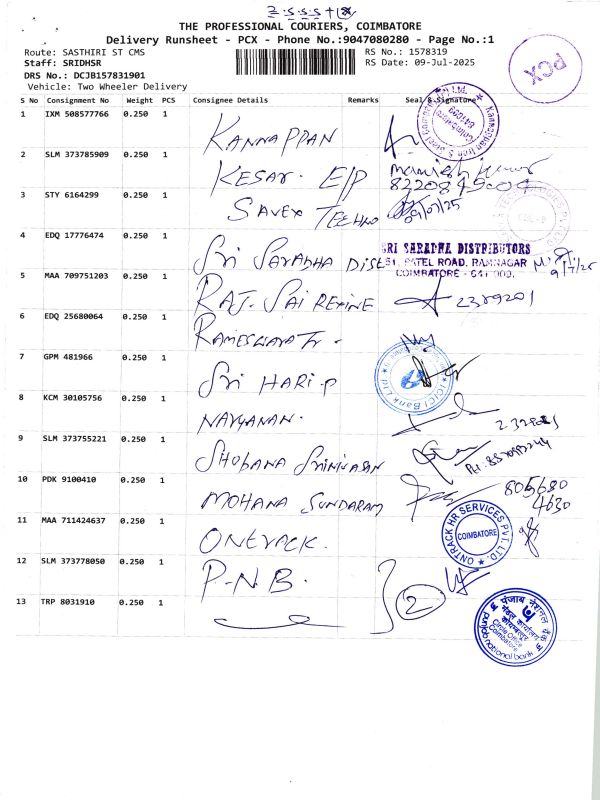 THE PROFESSIONAL COURIERS, COIMBATORE
Delivery Runsheet - PCX - Phone No.:9047080280 - Page No.:1
Route: SASTHIRI ST CMS
RS No.: 1578319
Staff: SRIDHSR
RS Date: 09-Jul-2025
DRS No.: DCJB157831901
Vehicle: Two Wheeler Delivery
PCX
S No Consignment No Weight PCS Consignee Details Remarks Seal & Signature
1 IXM 508577766 0.250 1 KANNAPPAN
2 SLM 373785909 0.250 1 KESAR. E/P
3 STY 6164299 0.250 1 SAVEX TECHNO 09/07/25
4 EDQ 17776474 0.250 1 Sri SARADHA DIST
SRI SARADHA DISTRIBUTORS
51, PATEL ROAD, RAMNAGAR
COIMBATORE - 641 009.
9/7/25
5 MAA 709751203 0.250 1 RAJ. SAI REXINE 2389201
6 EDQ 25680064 0.250 1
7 GPM 481966 0.250 1 Sri HARI.P
ICICI Bank Ltd
8 KCM 30105756 0.250 1 NARYANAN.
9 SLM 373755221 0.250 1 SHOBANA SRINIVASAN
10 PDK 9100410 0.250 1 MOHANA SUNDARAM 805680
4630
11 MAA 711424637 0.250 1 ONTRACK.
ONTRACK HR SERVICES PVT. LTD.
COIMBATORE
12 SLM 373778050 0.250 1 P.N.B. 2
13 TRP 8031910 0.250 1
पंजाब नैशनल बैंक
मंडल कार्यालय
कोयम्बत्तूर
Circle Office
Coimbatore
punjab national bank